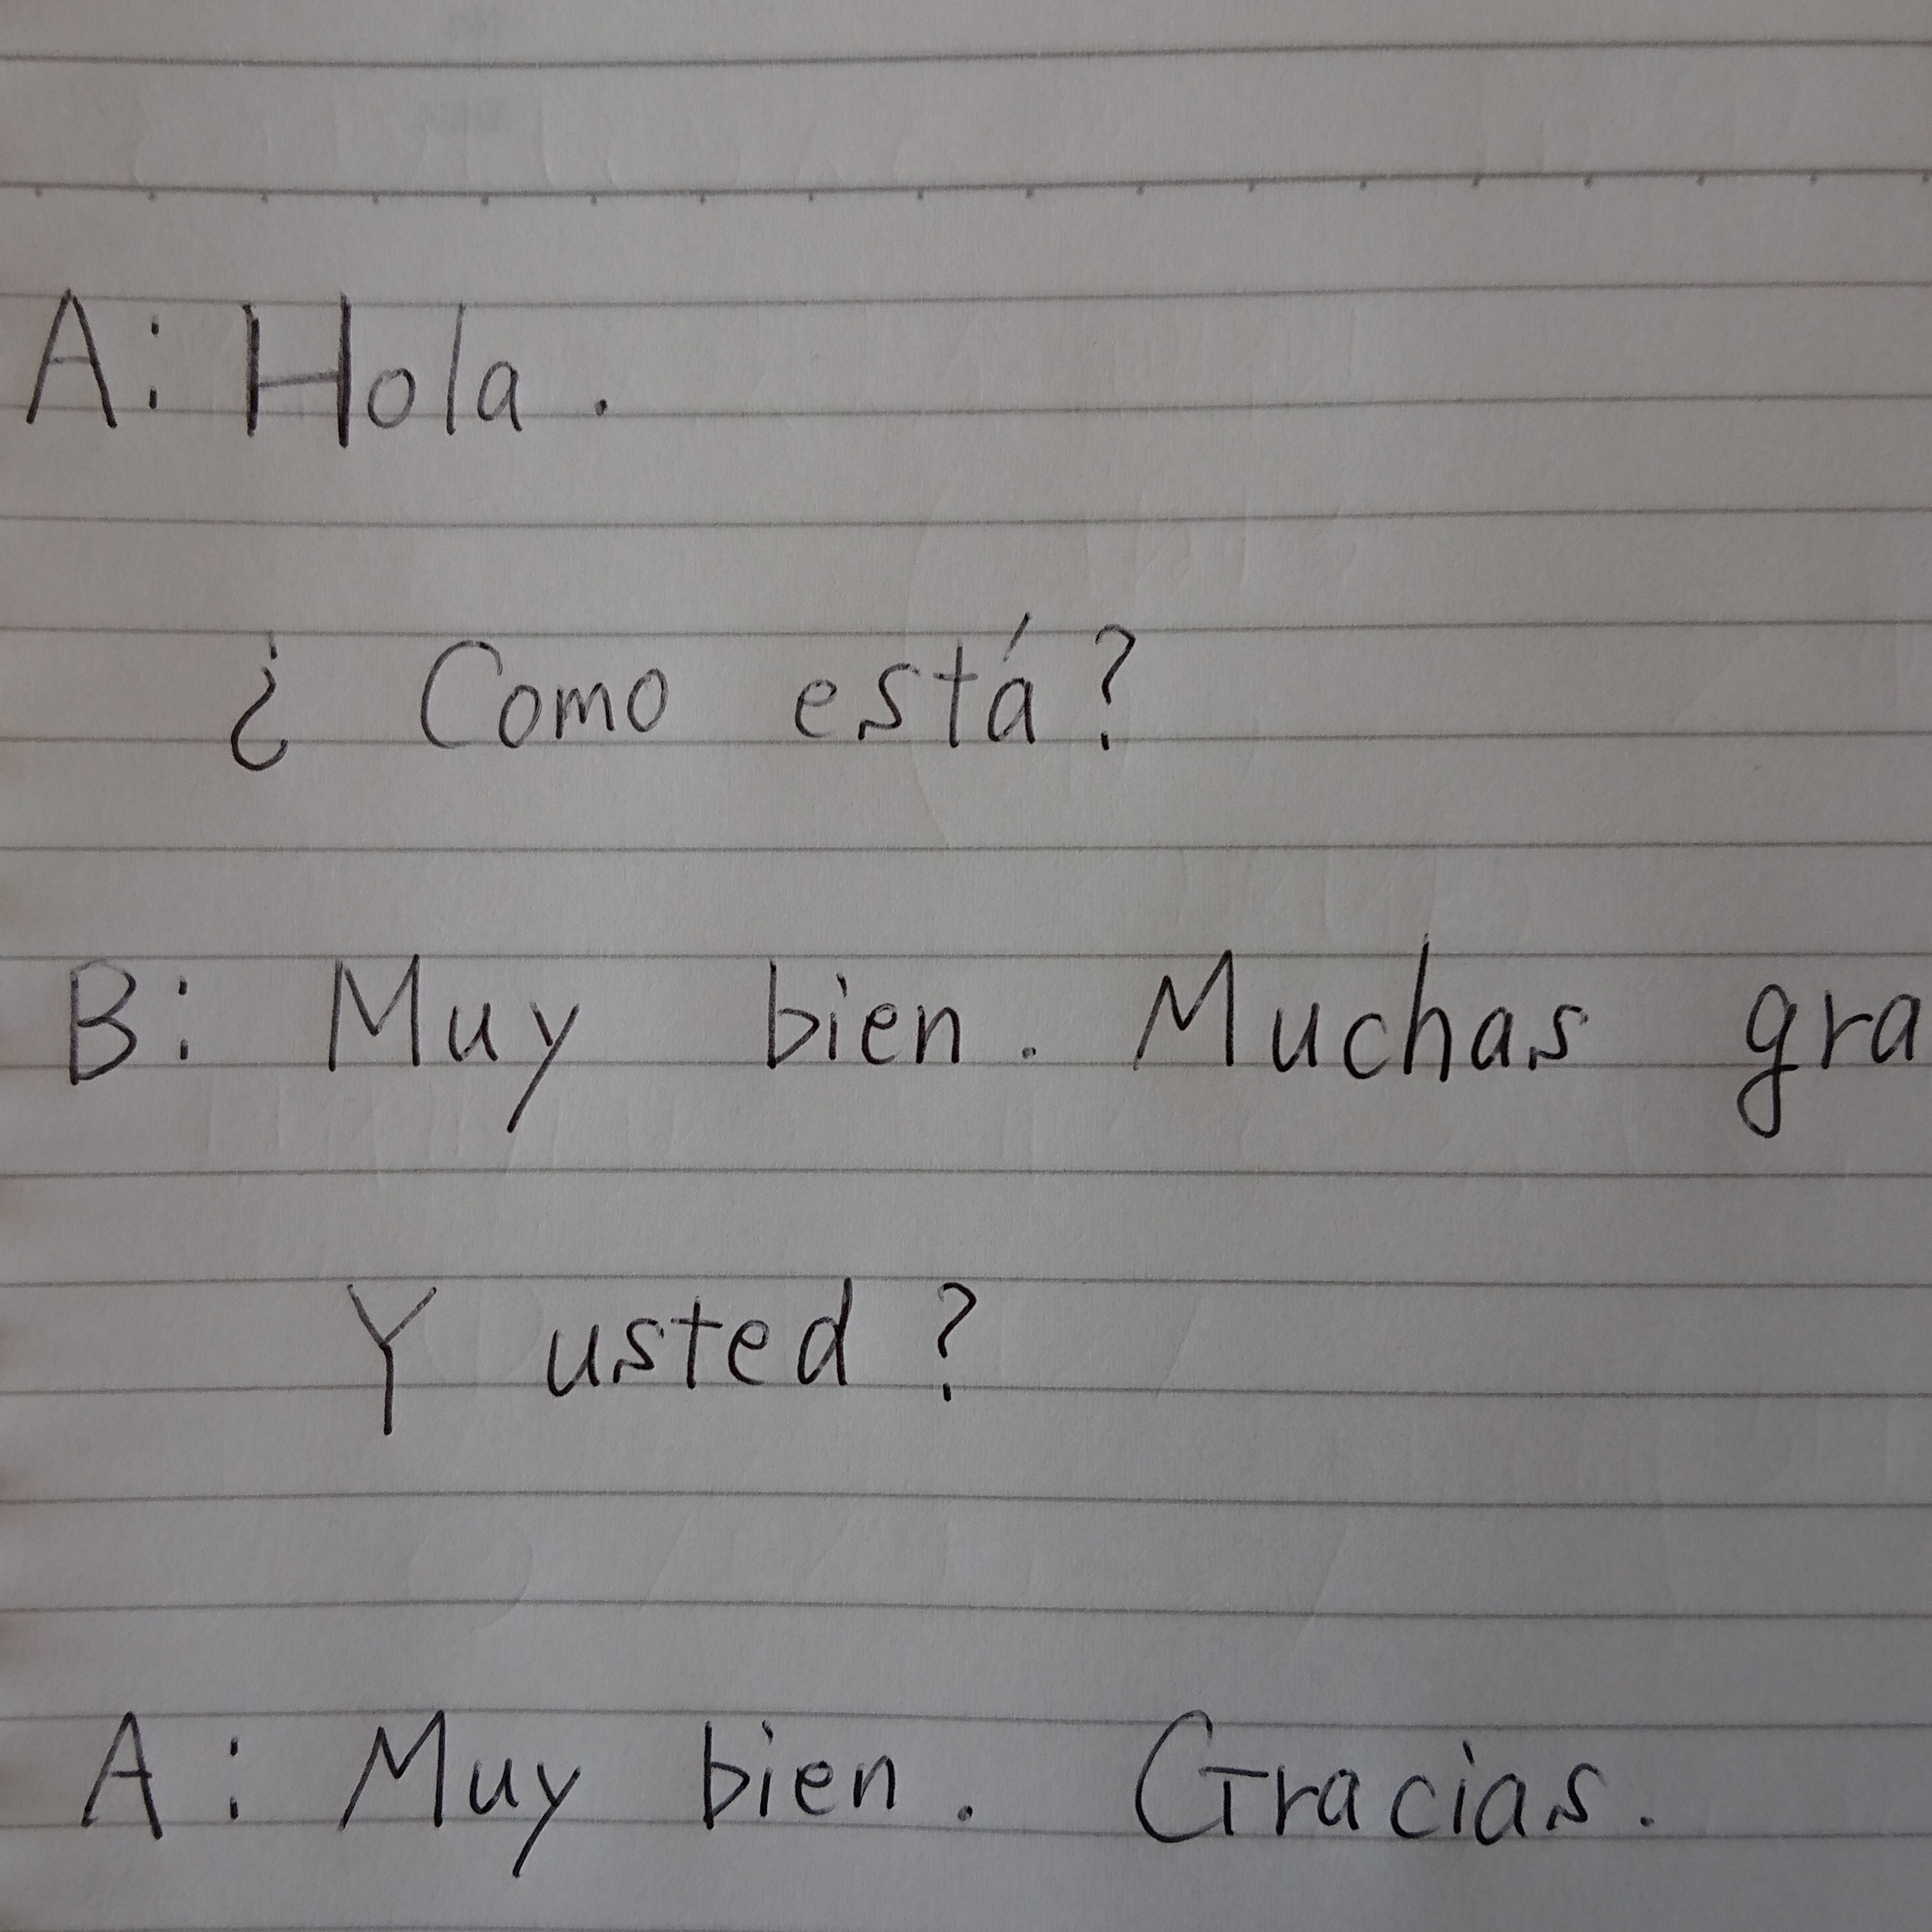 A: Hola.
¿Como está?
B: Muy bien. Muchas gra
Y usted?
A: Muy bien. Gracias.